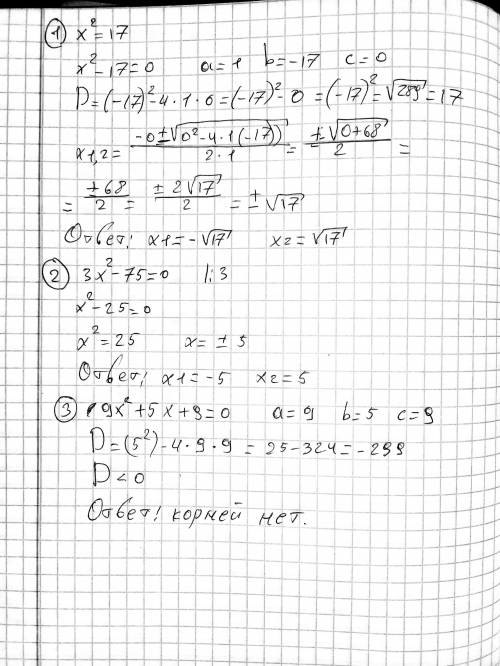 1 x²=17
x²-17=0 a=1 b=-17 c=0
D=(-17)²-4·1·0=(-17)²-0=(-17)²=√289=17
x1,2= (-0±√(0²-4·1(-17)))/(2·1) = (±√(0+68))/2 =
= ±68/2 = ±2√17/2 = ±√17
Ответ: x1=-√17 x2=√17
2 3x²-75=0 |:3
x²-25=0
x²=25 x=±5
Ответ: x1=-5 x2=5
3 9x²+5x+9=0 a=9 b=5 c=9
D=(5²)-4·9·9=25-324=-299
D<0
Ответ: корней нет.